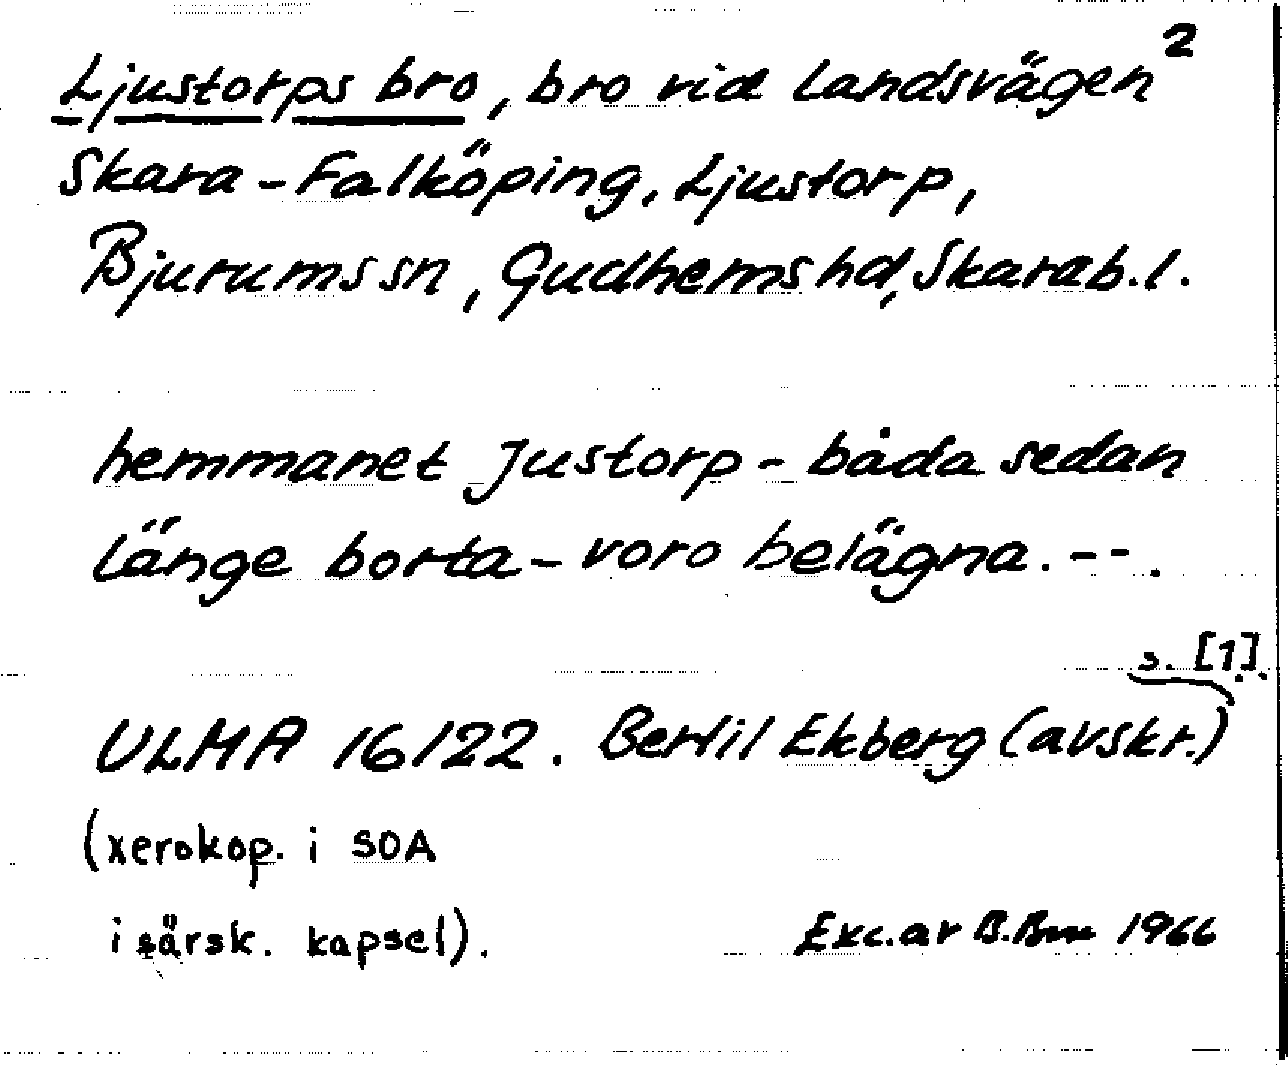 2
Ljustorps bro, bro vid landsvägen
Skara - Falköping, Ljustorp,
Bjurums sn, Gudhems hd, Skarab. l.
hemmanet Justorp - båda sedan
länge borta - voro belägna. --.
s. [1].
ULMA 16122. Bertil Ekberg (avskr.)
(xerokop. i SOA
i särsk. kapsel).
Exc. av B. 1966